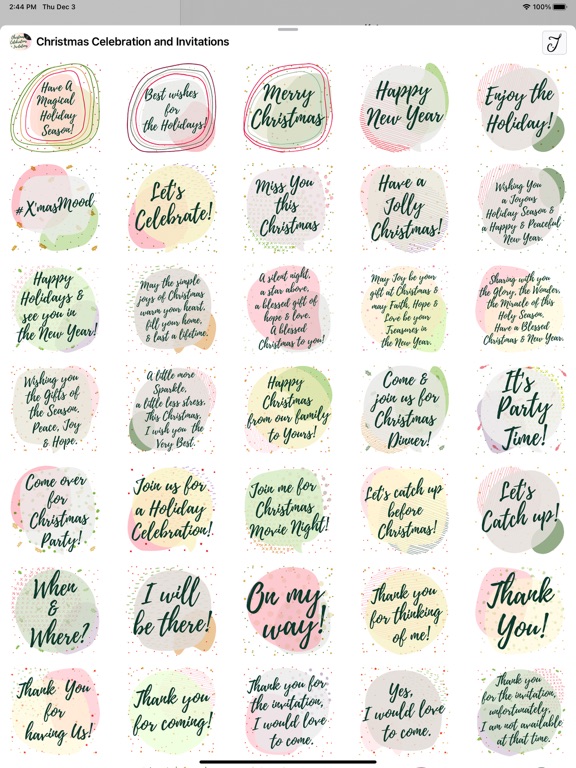 2:44 PM Thu Dec 3
100%
Christmas Celebration and Invitations
Have A
Magical
Holiday
Season!
Best wishes
for
the Holidays!
Merry
Christmas
Happy
New Year
Enjoy the
Holiday!
#X'masMood
Let's
Celebrate!
Miss You
this
Christmas
Have a
Jolly
Christmas!
Wishing You
a Joyous
Holiday Season &
a Happy & Peaceful
New Year.
Happy
Holidays &
see you in
the New Year!
May the simple
joys of Christmas
warm your heart,
fill your home,
& last a lifetime.
A silent night,
a star above,
a blessed gift of
hope & love.
A blessed
Christmas to you!
May Joy be your
gift at Christmas &
may Faith, Hope &
Love be your
Treasures in
the New Year.
Sharing with you
the Glory, the Wonder,
the Miracle of this
Holy Season.
Have a Blessed
Christmas & New Year.
Wishing you
the Gifts of
the Season,
Peace, Joy
& Hope.
A little more
Sparkle,
a little less stress,
This Christmas,
I wish you the
Very Best.
Happy
Christmas
from our family
to Yours!
Come &
join us for
Christmas
Dinner!
It's
Party
Time!
Come over
for
Christmas
Party!
Join us for
a Holiday
Celebration!
Join me for
Christmas
Movie Night!
Let's catch up
before
Christmas!
Let's
Catch up!
When
&
Where?
I will
be there!
On my
way!
Thank you
for thinking
of me!
Thank
You!
Thank You
for
having Us!
Thank you
for coming!
Thank you for
the invitation,
I would love
to come.
Yes,
I would love
to come.
Thank you
for the invitation,
unfortunately,
I am not available
at that time.